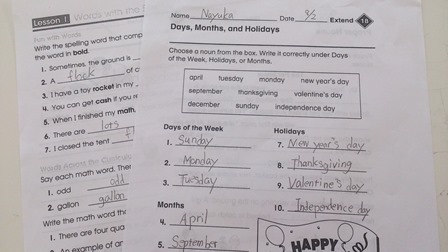 Lesson 1 Words with the
Pen with Words
Write the spelling word that comp
the word in bold.
1. Sometimes, the ground is
2. A flock of a
3. I have a toy rocket in my
4. You can get cash if you
5. When I finished my math,
6. There are lots
7. I closed the tent
Words Across the Curriculum
Say each math word. Then
1. odd odd
2. gallon gallon
Write the math word tha
1. There are four qua
2. An example of an
Name Nayuka Date 9/2 Extend 18
Days, Months, and Holidays
Choose a noun from the box. Write it correctly under Days
of the Week, Holidays, or Months.
april tuesday monday new year's day
september thanksgiving valentine's day
december sunday independence day
Days of the Week
1. Sunday
2. Monday
3. Tuesday
Months
4. April
5. September
Holidays
7. New year's day
8. Thanksgiving
9. Valentine's day
10. Independence day
HAPPY